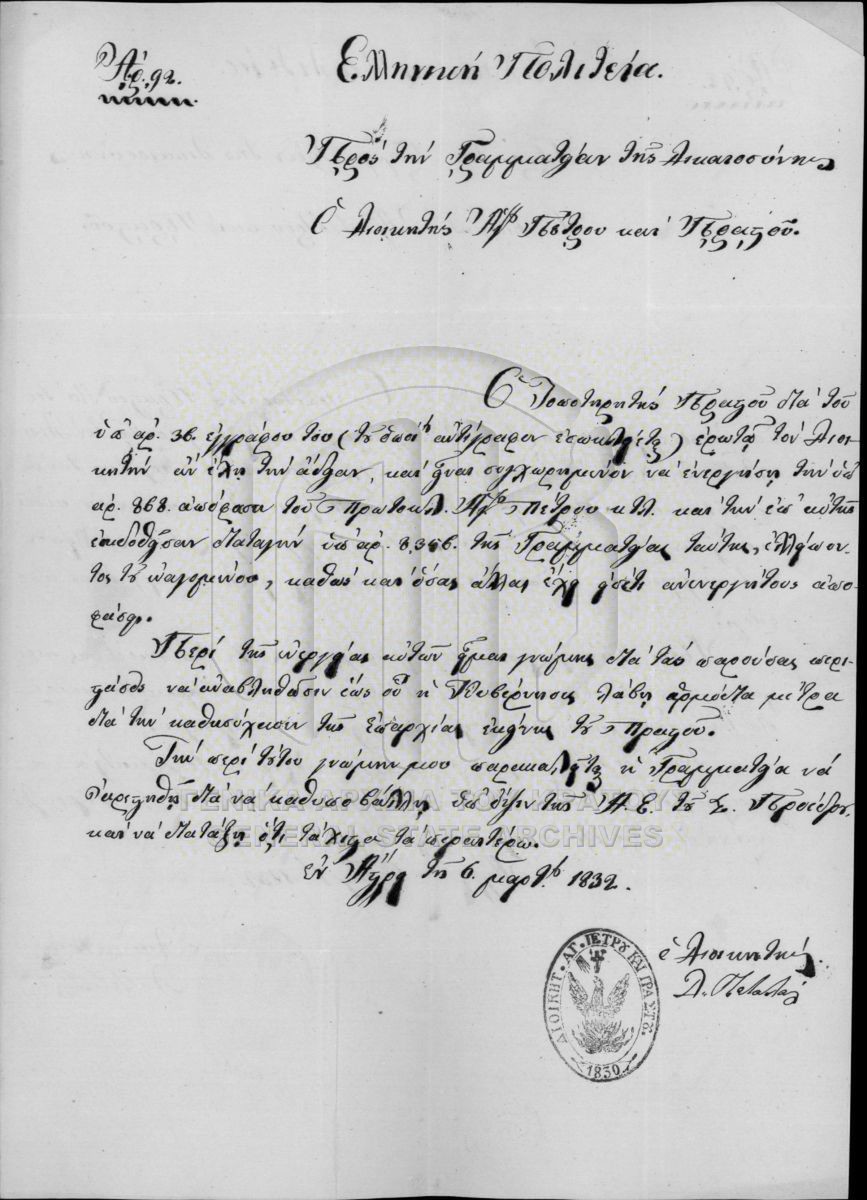 Ἀρ. 92.
Ἑλληνική Πολιτεία.
Πρός τήν Γραμματείαν τῆς Δικαιοσύνης
Ὁ Διοικητής Ἁγ. Πέτρου καί Πραστοῦ.
Ὁ Τοποτηρητής Πραστοῦ διά τοῦ
ὑπ' ἀρ. 36. ἐγγράφου του (τοῦ ὁποίου ἀντίγραφον ἐσωκλείεται) ἐρωτᾷ τόν Διοι-
κητήν ἄν ἔχῃ τήν ἄδειαν, καί ἦναι συγχωρημένον νά ἐνεργήσῃ τήν ὑπ'
ἀρ. 868. ἀπόφασιν τοῦ Πρωτοκλ. Ἁγ. Πέτρου κτλ. καί τήν ἐπ' αὐτῆς
ἐκδοθεῖσαν διαταγήν ὑπ' ἀρ. 8,356. τῆς Γραμματείας ταύτης,
καθώς καί ὅσας ἄλλας ἔχει εἰσέτι ἀνενεργήτους ἀπο-
φάσεις.
Περί τῆς ἐνεργείας αὐτῶν εἶμαι γνώμης διά τάς παρούσας περι-
στάσεις νά ἀναβληθῶσιν ἕως οὗ ἡ Κυβέρνησις λάβῃ ἁρμόδια μέτρα
διά τήν καθησύχασιν τῆς ἐπαρχίας ἐκείνης τοῦ Πραστοῦ.
Τήν περί τούτου γνώμην μου παρακαλεῖται ἡ Γραμματεία νά
εὐαρεστηθῇ διά νά καθυποβάλλῃ ὑπ' ὄψιν τῆς Α. Ε. τοῦ Σ. Προέδρου,
καί νά διατάξῃ ὅ,τι τάχιστα τά περαιτέρω.
ἐν Ἄστρει τῆς 6. μαρτ. 1832.
ὁ Διοικητής
ΔΙΟΙΚΗΤ. ΑΓ. ΠΕΤΡΟΥ ΚΑΙ ΠΡΑΣΤΟΥ.
1830
ΓΕΝΙΚΑ ΑΡΧΕΙΑ ΤΟΥ ΚΡΑΤΟΥΣ
GENERAL STATE ARCHIVES